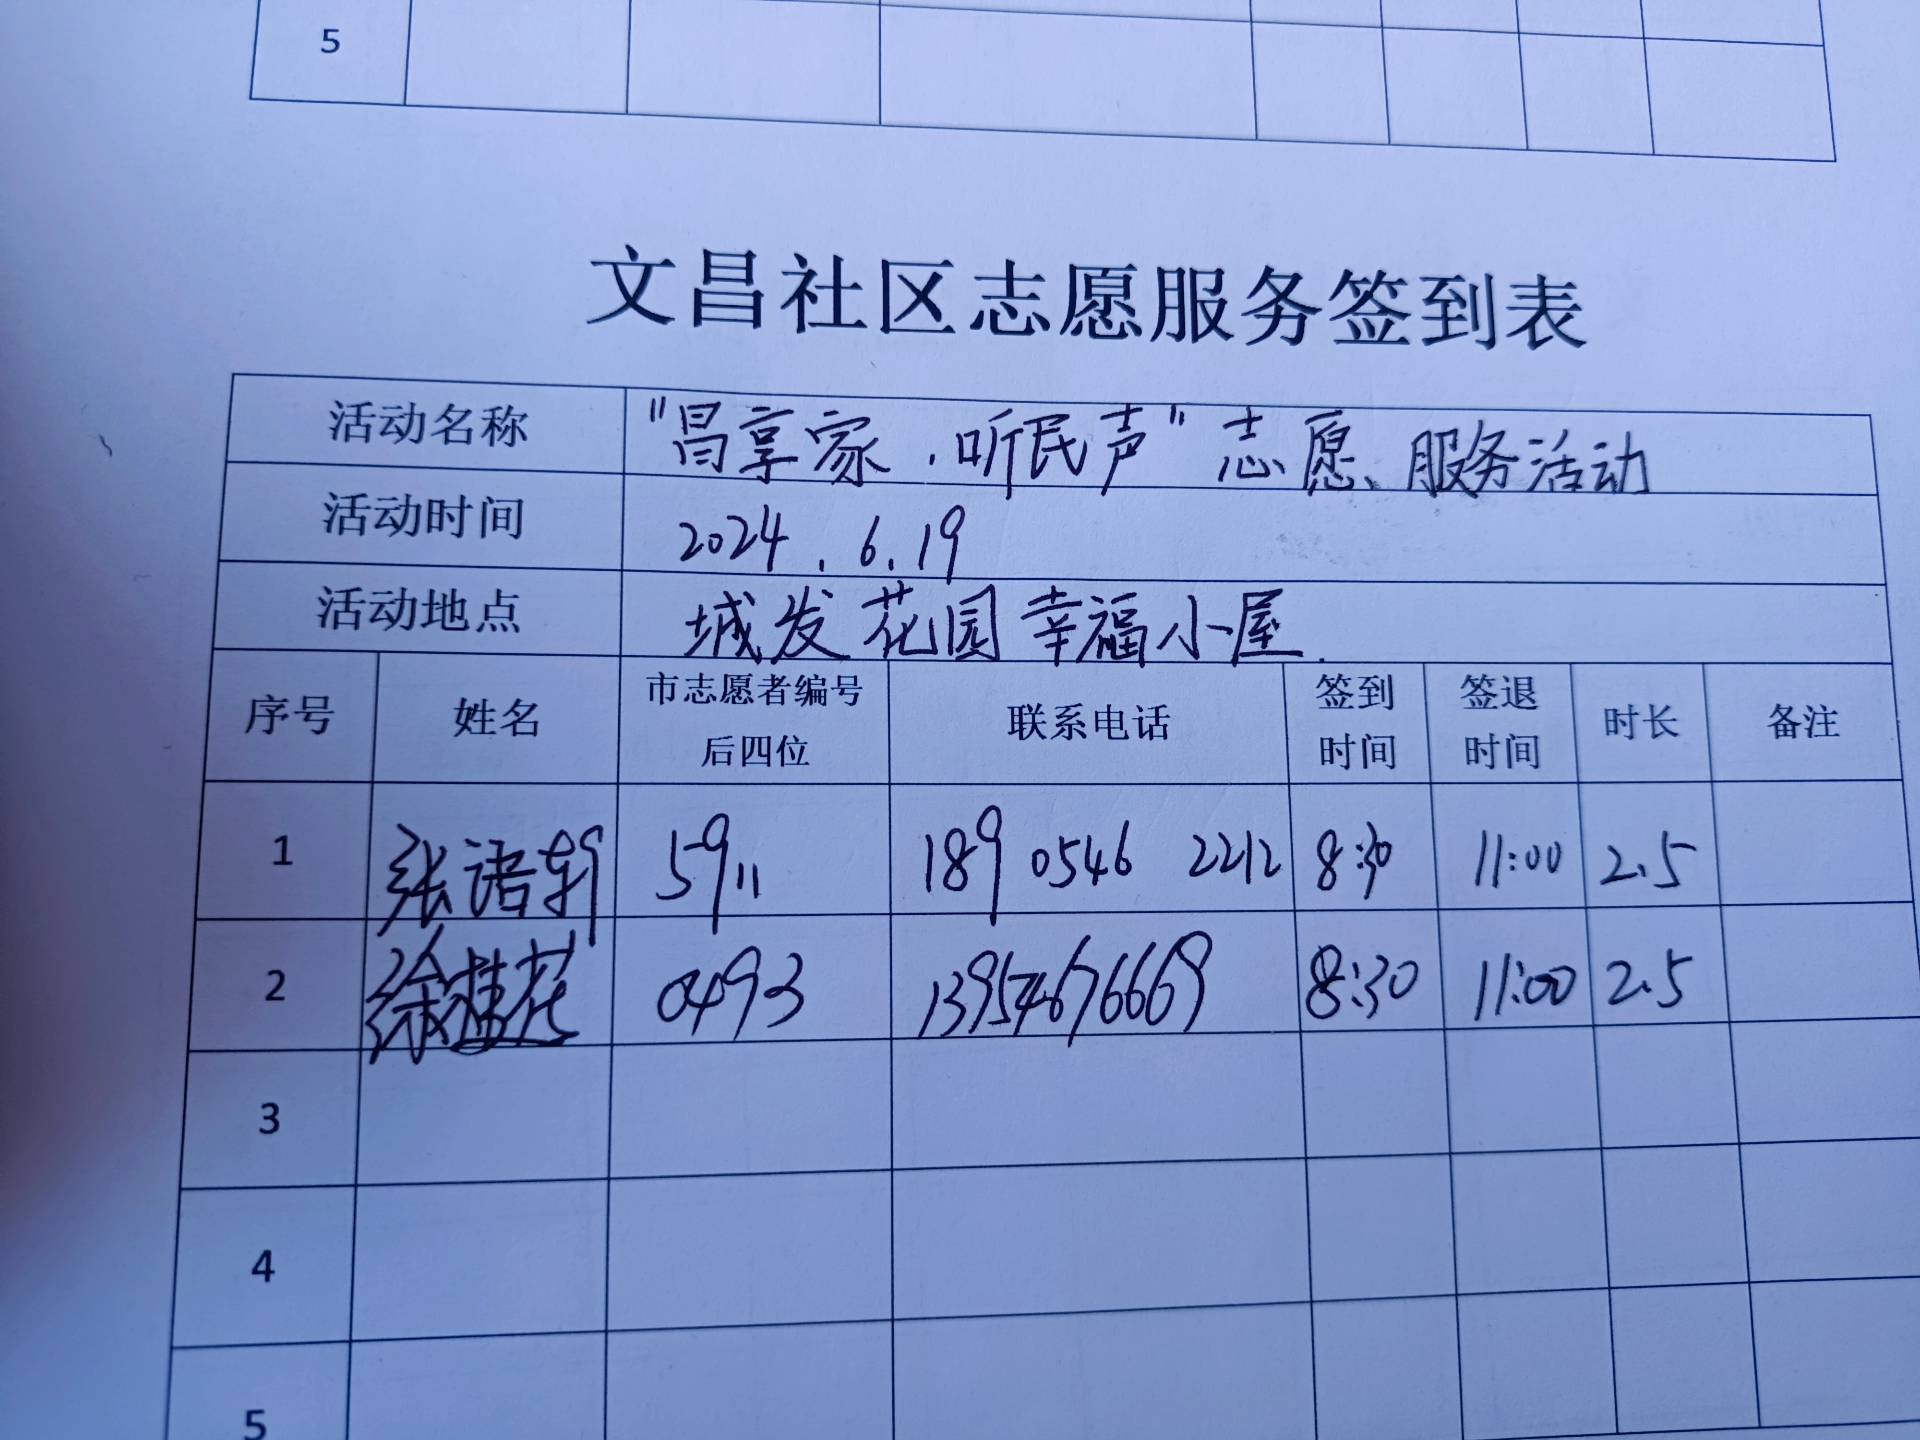 5
文昌社区志愿服务签到表
活动名称 "昌享家·听民声"志愿服务活动
活动时间 2024.6.19
活动地点 城发花园幸福小屋
序号 姓名 市志愿者编号后四位 联系电话 签到时间 签退时间 时长 备注
1 张语轩 5911 189 0546 2212 8:30 11:00 2.5
2 徐桂花 0493 13954676669 8:30 11:00 2.5
3
4
5